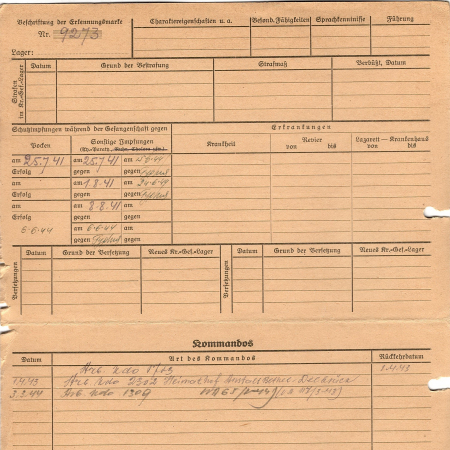 Beschriftung der Erkennungsmarke
Nr. 9273
Lager:
Charaktereigenschaften u. a.
Besond. Fähigkeiten
Sprachkenntnisse
Führung
Strafen im Kr.-Gef.-Lager
Datum
Grund der Bestrafung
Strafmaß
Verbüßt, Datum
Schutzimpfungen während der Gefangenschaft gegen
Erkrankungen
Pocken
Sonstige Impfungen
Krankheit
Revier
von bis
Lazarett — Krankenhaus
von bis
am 25.7.41 am 25.7.41 am
Erfolg gegen gegen
am am 1.8.41 am
Erfolg gegen gegen
am am 8.8.41 am
Erfolg gegen gegen
6-6-44 am 6-6-44 am
gegen gegen
Versetzungen
Datum
Grund der Versetzung
Neues Kr.-Gef.-Lager
Versetzungen
Datum
Grund der Versetzung
Neues Kr.-Gef.-Lager
Kommandos
Datum
Art des Kommandos
Rückkehrdatum
Arb. Kdo
1.4.43
1.4.43 Arb. Kdo 2302
3.2.44 Arb. Kdo 1309